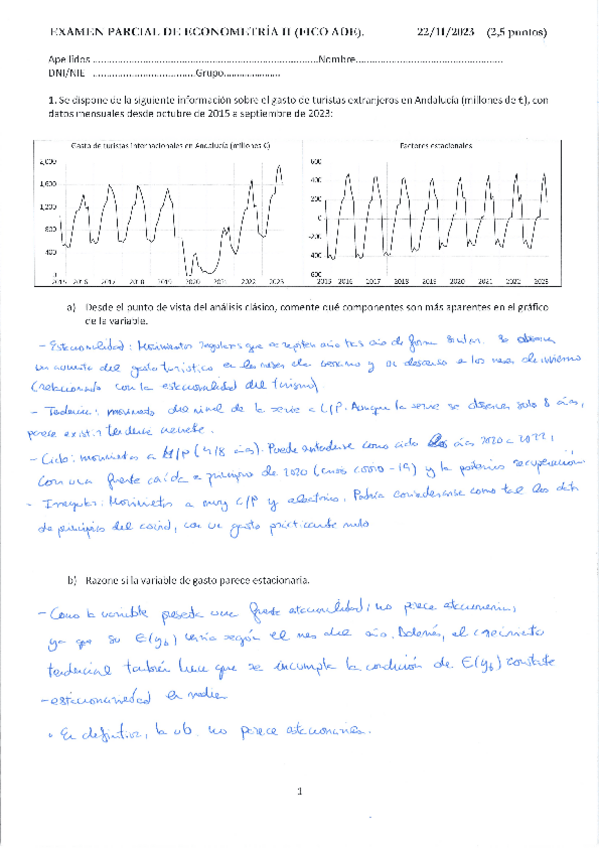 EXAMEN PARCIAL DE ECONOMETRÍA II (FICO ADE). 22/11/2023 (2,5 puntos)
Apellidos ......................................................................Nombre......................................................
DNI/NIE ....................................Grupo....................
1. Se dispone de la siguiente información sobre el gasto de turistas extranjeros en Andalucía (millones de €), con
datos mensuales desde octubre de 2015 a septiembre de 2023:
Gasto de turistas internacionales en Andalucía (millones €)
2,000
1,600
1,200
800
400
0
2015 2016 2017 2018 2019 2020 2021 2022 2023
Factores estacionales
600
400
200
0
-200
-400
-600
2015 2016 2017 2018 2019 2020 2021 2022 2023
a) Desde el punto de vista del análisis clásico, comente qué componentes son más aparentes en el gráfico
de la variable.
- Estacionalidad: Movimientos regulares que se repiten año tras año de forma similar. Se observa
un aumento del gasto turístico en los meses de verano y un descenso en los meses de invierno
(relacionado con la estacionalidad del turismo).
- Tendencia: movimiento del nivel de la serie a L/P. Aunque la serie se observa solo 8 años,
parece existir tendencia creciente.
- Ciclo: movimientos a M/P (4/8 años). Puede entenderse como ciclo los años 2020 a 2022,
con una fuerte caída a principio de 2020 (crisis COVID-19) y la posterior recuperación
- Irregular: Movimientos a muy C/P y aleatorios. Podría considerarse como tal los datos
de principios del covid, con un gasto prácticamente nulo
b) Razone si la variable de gasto parece estacionaria.
- Como la variable presenta una fuerte estacionalidad, no parece estacionaria,
ya que su E(yt) varía según el mes del año. Además, el crecimiento
tendencial también hace que se incumpla la condición de E(yt) constante
- estacionariedad en media
• En definitiva, la vb. no parece estacionaria.
1